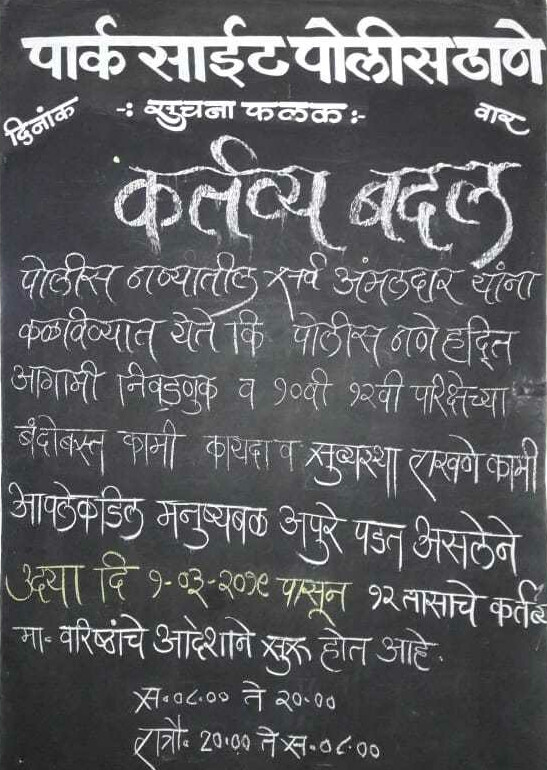 पार्क साईट पोलीस ठाणे
दिनांक -: सुचना फळक :- वार
कर्तव्य बदल
पोलीस ठाण्यातील सर्व अंमलदार यांना
कळविण्यात येते कि पोलीस ठाणे हद्दित
आगामी निवडणुक व १०वी १२वी परिक्षेच्या
बंदोबस्त कामी कायदा व सुव्यस्था राखणे कामी
आपलेकडिल मनुष्यबळ अपुरे पडत असलेने
उदया दि १-०३-२०१९ पासून १२ तासाचे कर्तव्य
मा. वरिष्ठांचे आदेशाने सुरू होत आहे.
स.०८.०० ते २०.००
रात्रौ. २०.०० ते स.०८.००